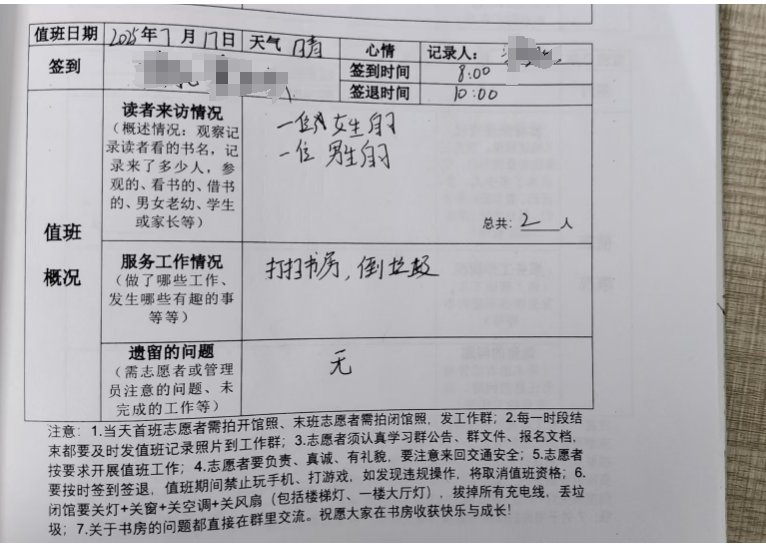 值班日期 2025年7月17日 天气 晴 心情 记录人：
签到 签到时间 8:00
签退时间 10:00
值班概况
读者来访情况
（概述情况：观察记
录读者看的书名，记
录来了多少人，参
观的、看书的、借书
的、男女老幼、学生
或家长等）
一位 女生自习
一位 男生自习
总共：2人
服务工作情况
（做了哪些工作、
发生哪些有趣的事
等等）
打扫书房，倒垃圾
遗留的问题
（需志愿者或管理
员注意的问题、未
完成的工作等）
无
注意：1.当天首班志愿者需拍开馆照、末班志愿者需拍闭馆照，发工作群；2.每一时段结
束都要及时发值班记录照片到工作群；3.志愿者须认真学习群公告、群文件、报名文档，
按要求开展值班工作；4.志愿者要负责、真诚、有礼貌，要注意来回交通安全；5.志愿者
要按时签到签退，值班期间禁止玩手机、打游戏，如发现违规操作，将取消值班资格；6.
闭馆要关灯+关窗+关空调+关风扇（包括楼梯灯、一楼大厅灯），拔掉所有充电线，丢垃
圾；7.关于书房的问题都直接在群里交流。祝愿大家在书房收获快乐与成长！